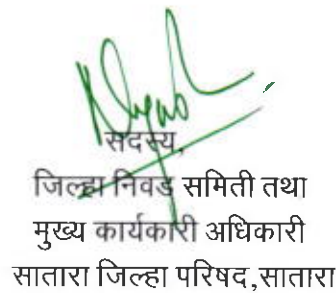 सदस्य,
जिल्हा निवड समिती तथा
मुख्य कार्यकारी अधिकारी
सातारा जिल्हा परिषद,सातारा